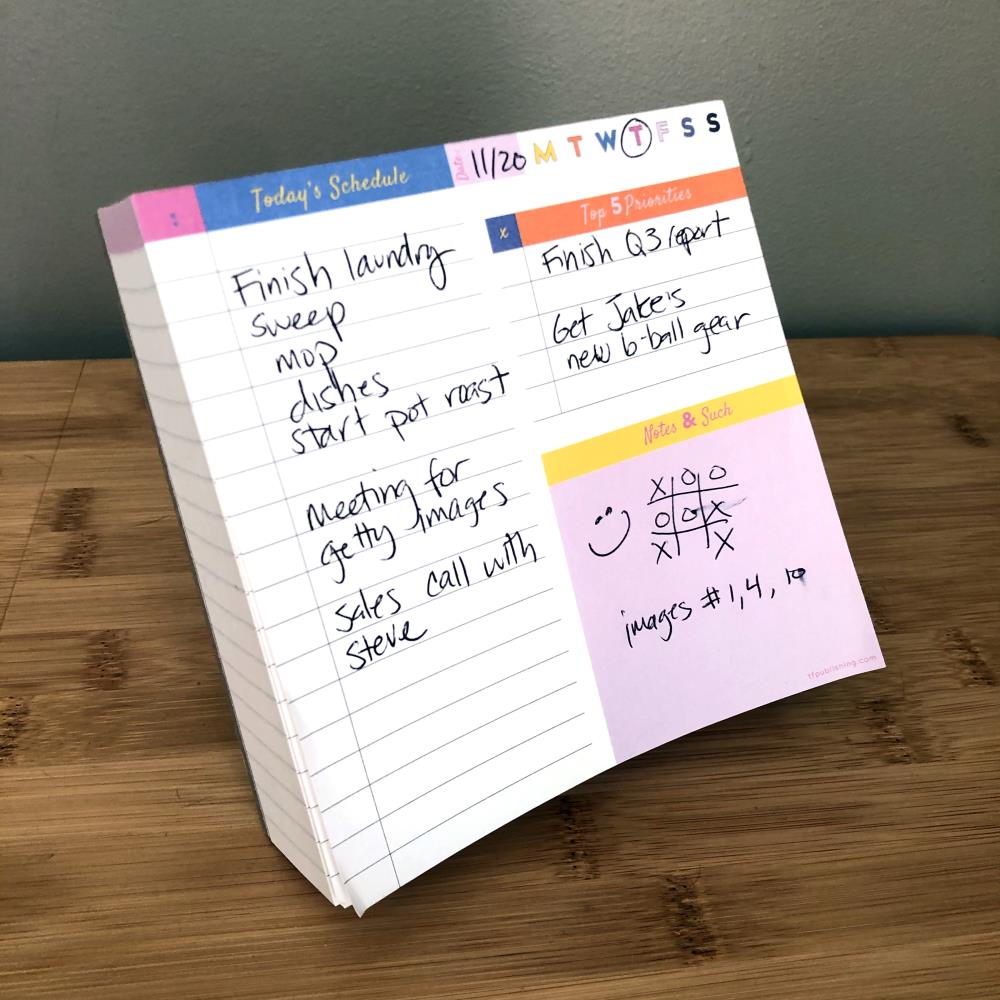 : Today's Schedule Date: 11/20 M T W T F S S
Finish laundry
sweep
mop
dishes
start pot roast
Meeting for
getty images
sales call with
steve
x Top 5 Priorities
Finish Q3 report
Get Jake's
new b-ball gear
Notes & Such
X O O
O O X
X X
images #1, 4, 10
tfpublishing.com